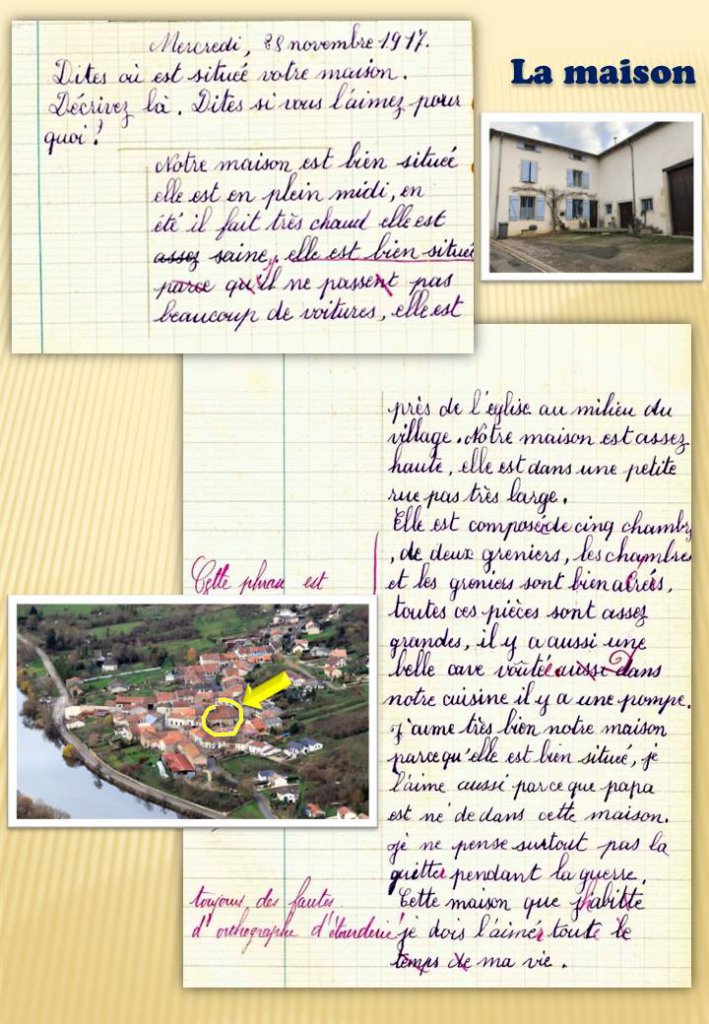 Mercredi, 28 novembre 1917.
Dites où est située votre maison.
Décrivez là. Dites si vous l'aimez pour
quoi?
Notre maison est bien située
elle est en plein midi, en
été il fait très chaud elle est
assez saine, elle est bien située
parce qu'il ne passent pas
beaucoup de voitures, elle est
La maison
près de l'église au milieu du
village. Notre maison est assez
haute, elle est dans une petite
rue pas très large.
Elle est composée de cinq chambr
, de deux greniers, les chambres
et les greniers sont bien aérés,
toutes ces pièces sont assez
grandes, il y a aussi une
belle cave voûtée aussi Dans
notre cuisine il y a une pompe.
J'aime très bien notre maison
parcequ'elle est bien situé, je
l'aime aussi parce que papa
est né dedans cette maison.
je ne pense surtout pas la
quitter pendant la guerre.
Cette maison que j'habite
je dois l'aimer toute le
temps de ma vie.
Cette phrase est
toujours des fautes
d'orthographe d'étourderie!